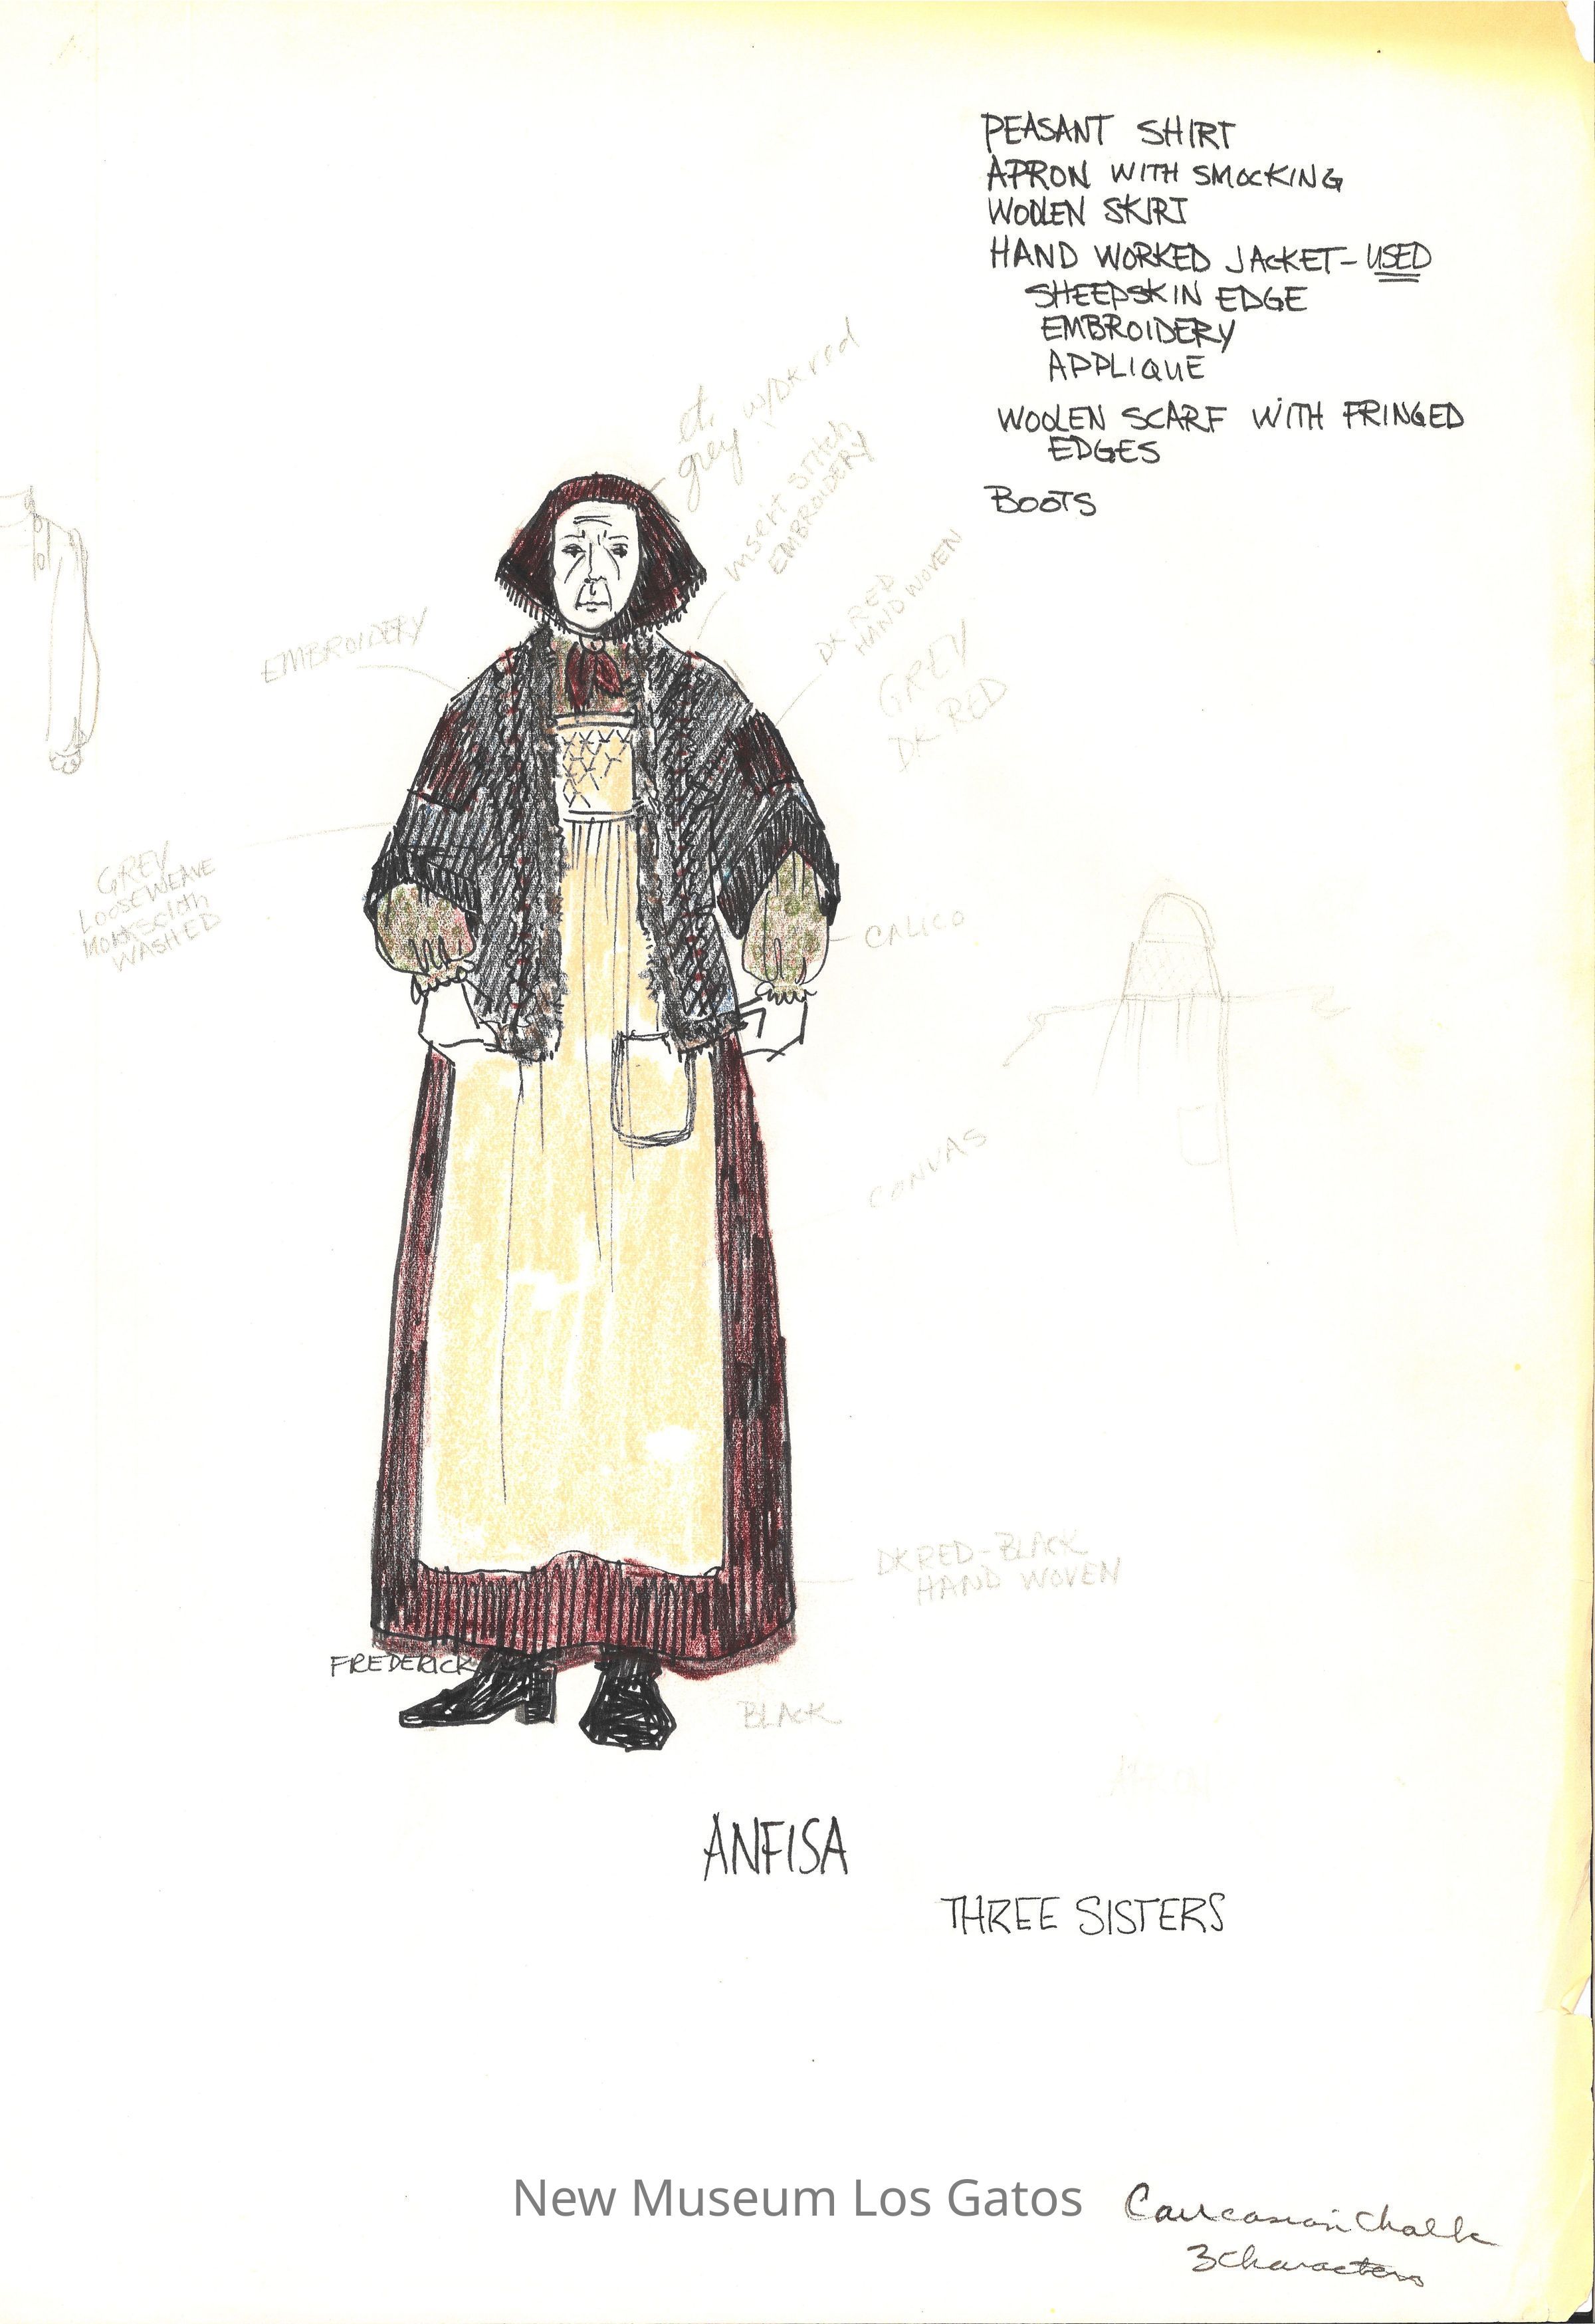 PEASANT SHIRT
APRON WITH SMOCKING
WOOLEN SKIRT
HAND WORKED JACKET - USED
SHEEPSKIN EDGE
EMBROIDERY
APPLIQUE
WOOLEN SCARF WITH FRINGED
EDGES
BOOTS
grey w/DK red
insert stitch
EMBROIDERY
DK RED
HAND WOVEN
GREY
DK RED
EMBROIDERY
GREY
LOOSEWEAVE
MONKSCLOTH
WASHED
CALICO
CONVAS
DK RED-BLACK
HAND WOVEN
FREDERICK
BLACK
APRON
ANFISA
THREE SISTERS
New Museum Los Gatos
Caucasian Chalk
3 Characters